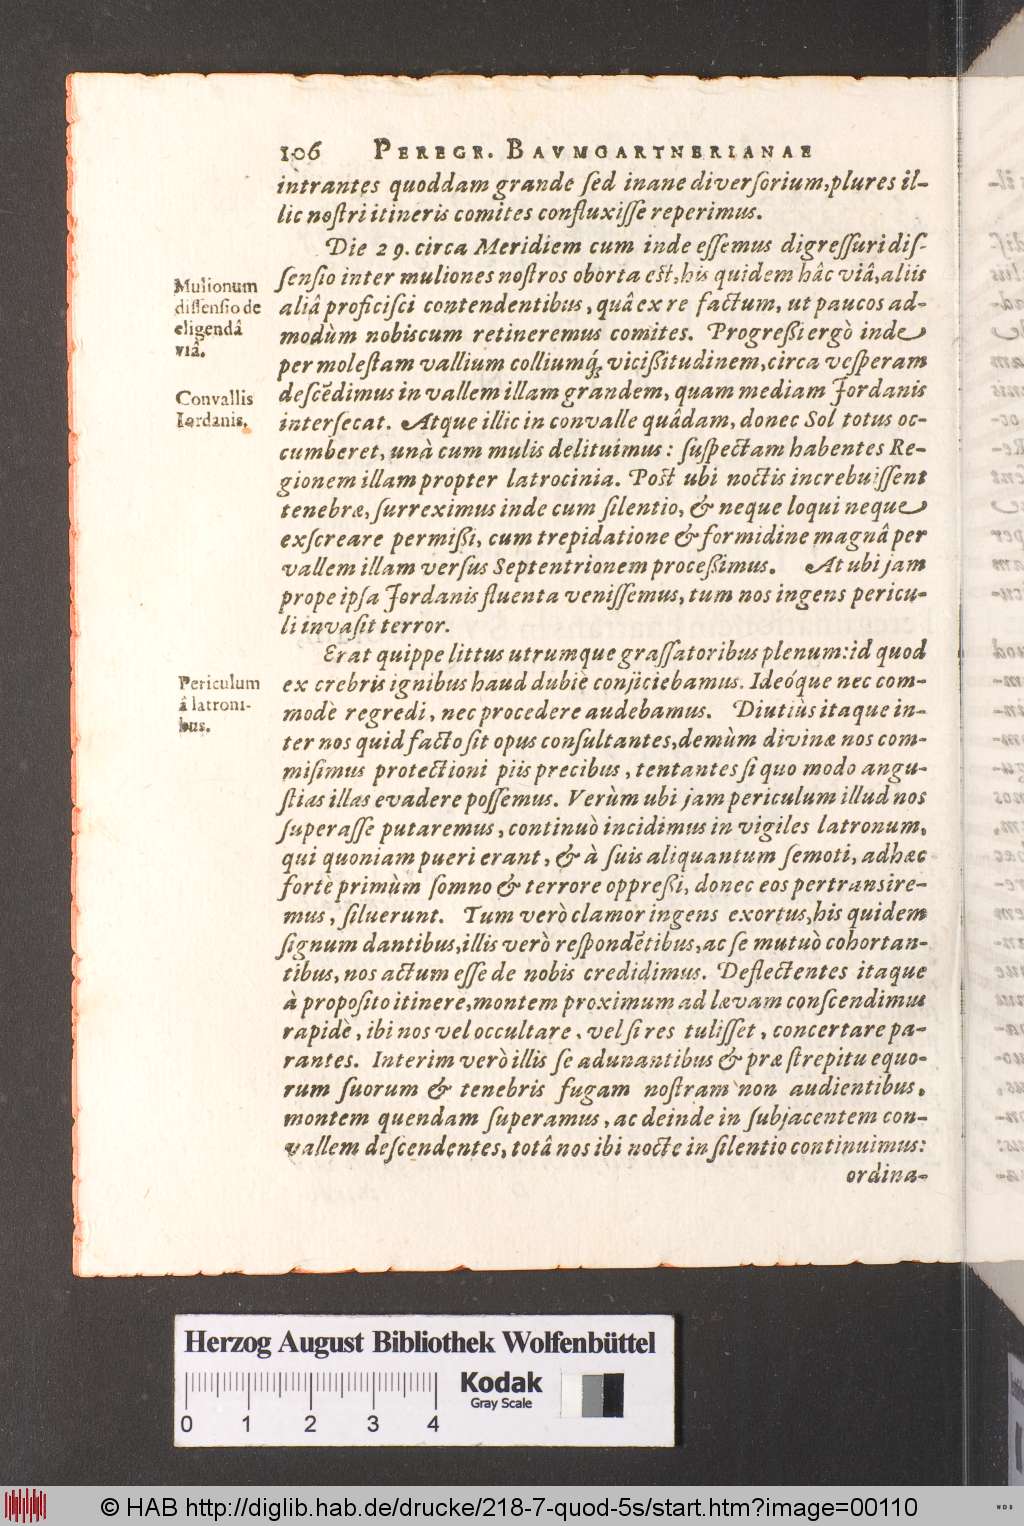 106 PEREGR. BAVMGARTNERIANAE
intrantes quoddam grande ſed inane diverſorium, plures il-
lic noſtri itineris comites confluxiſſe reperimus.
Die 29. circa Meridiem cum inde eſſemus digreſſuri diſ-
ſenſio inter muliones noſtros oborta eſt, his quidem hâc viâ, aliis
aliâ proficiſci contendentibus, quâ ex re factum, ut paucos ad-
modùm nobiscum retineremus comites. Progreßi ergò inde
per moleſtam vallium colliumq́; vicißitudinem, circa veſperam
deſcẽdimus in vallem illam grandem, quam mediam Jordanis
interſecat. Atque illic in convalle quâdam, donec Sol totus oc-
cumberet, unà cum mulis delituimus: ſuſpectam habentes Re-
gionem illam propter latrocinia. Poſt ubi noctis increbuiſſent
tenebræ, ſurreximus inde cum ſilentio, & neque loqui neque
exſcreare permißi, cum trepidatione & formidine magnâ per
vallem illam verſus Septentrionem proceßimus. At ubi jam
prope ipſa Jordanis fluenta veniſſemus, tum nos ingens pericu-
li invaſit terror.
Erat quippe littus utrumque graſſatoribus plenum: id quod
ex crebris ignibus haud dubiè conjiciebamus. Ideóque nec com-
modè regredi, nec procedere audebamus. Diutiùs itaque in-
ter nos quid facto ſit opus conſultantes, demùm divinæ nos com-
miſimus protectioni piis precibus, tentantes ſi quo modo angu-
ſtias illas evadere poſſemus. Verùm ubi jam periculum illud nos
ſuperaſſe putaremus, continuò incidimus in vigiles latronum,
qui quoniam pueri erant, & à ſuis aliquantum ſemoti, adhæc
fortè primùm ſomno & terrore oppreßi, donec eos pertransire-
mus, ſiluerunt. Tum verò clamor ingens exortus, his quidem
ſignum dantibus, illis verò reſpondẽtibus, ac ſe mutuò cohortan-
tibus, nos actum eſſe de nobis credidimus. Deflectentes itaque
à propoſito itinere, montem proximum ad lævam conſcendimus
rapidè, ibi nos vel occultare, vel ſi res tuliſſet, concertare pa-
rantes. Interim verò illis ſe adunantibus & præ ſtrepitu equo-
rum ſuorum & tenebris fugam noſtram non audientibus,
montem quendam ſuperamus, ac deinde in ſubjacentem con-
vallem deſcendentes, totâ nos ibi nocte in ſilentio continuimus:
ordina-
Mulionum
diſſenſio de
eligendâ
viâ.
Convallis
Iordanis.
Periculum
â latroni-
bus.
Herzog August Bibliothek Wolfenbüttel
0 1 2 3 4
Kodak
Gray Scale
© HAB http://diglib.hab.de/drucke/218-7-quod-5s/start.htm?image=00110